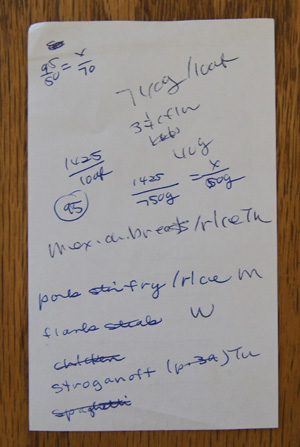 95/50 = x/70
740g/loaf
40g
1425/loaf
1425/750g = x/50g
95
mex. ch. breasts/rice Tu
pork stir fry/rice M
flank steak W
chicken
stroganoff Tu
spaghetti